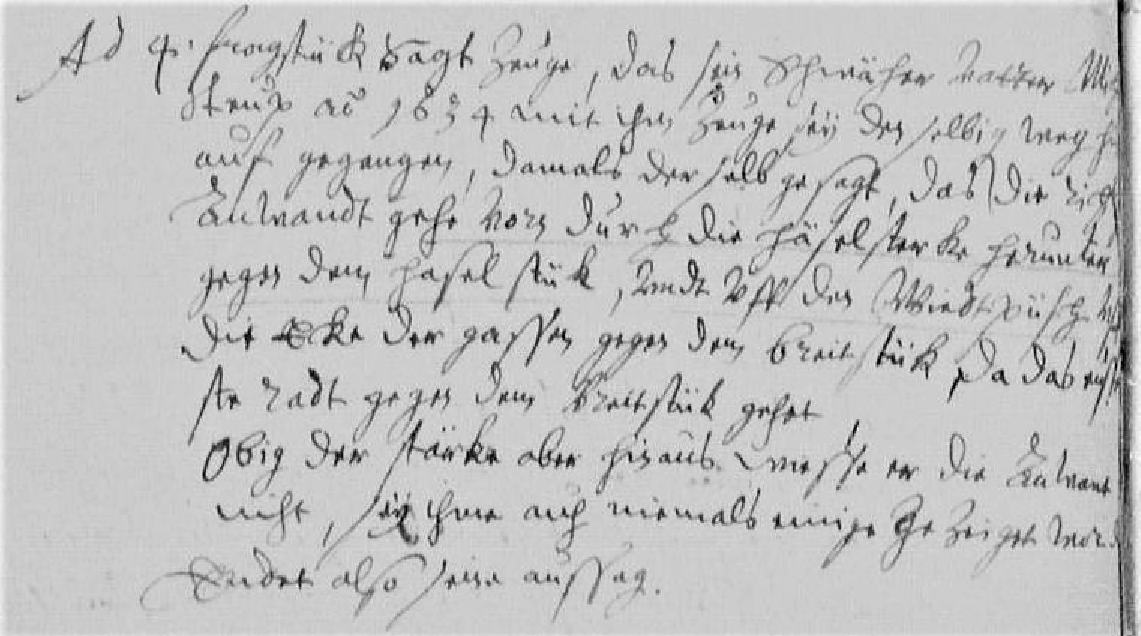 Ad 4. fragstück sagt Zeüge, das sein Schwäher Vatter
Steup ao 1634 mit ihm Zeüge seÿ den selbig weg
auf gegangen, damals derselb gesagt, das die
Anwandt gehe vorn durch die häselstercke herunter
gegen dem hasel stük, vndt vff den
die Ecke der gassen gegen dem breit stük, da das
ste radt gegen dem breitstük gehet
Obig der stärke aber hinaus wusste er die Anwant
nicht, seÿ ihme auch niemals einige gezeiget
Endet also seine aussag.